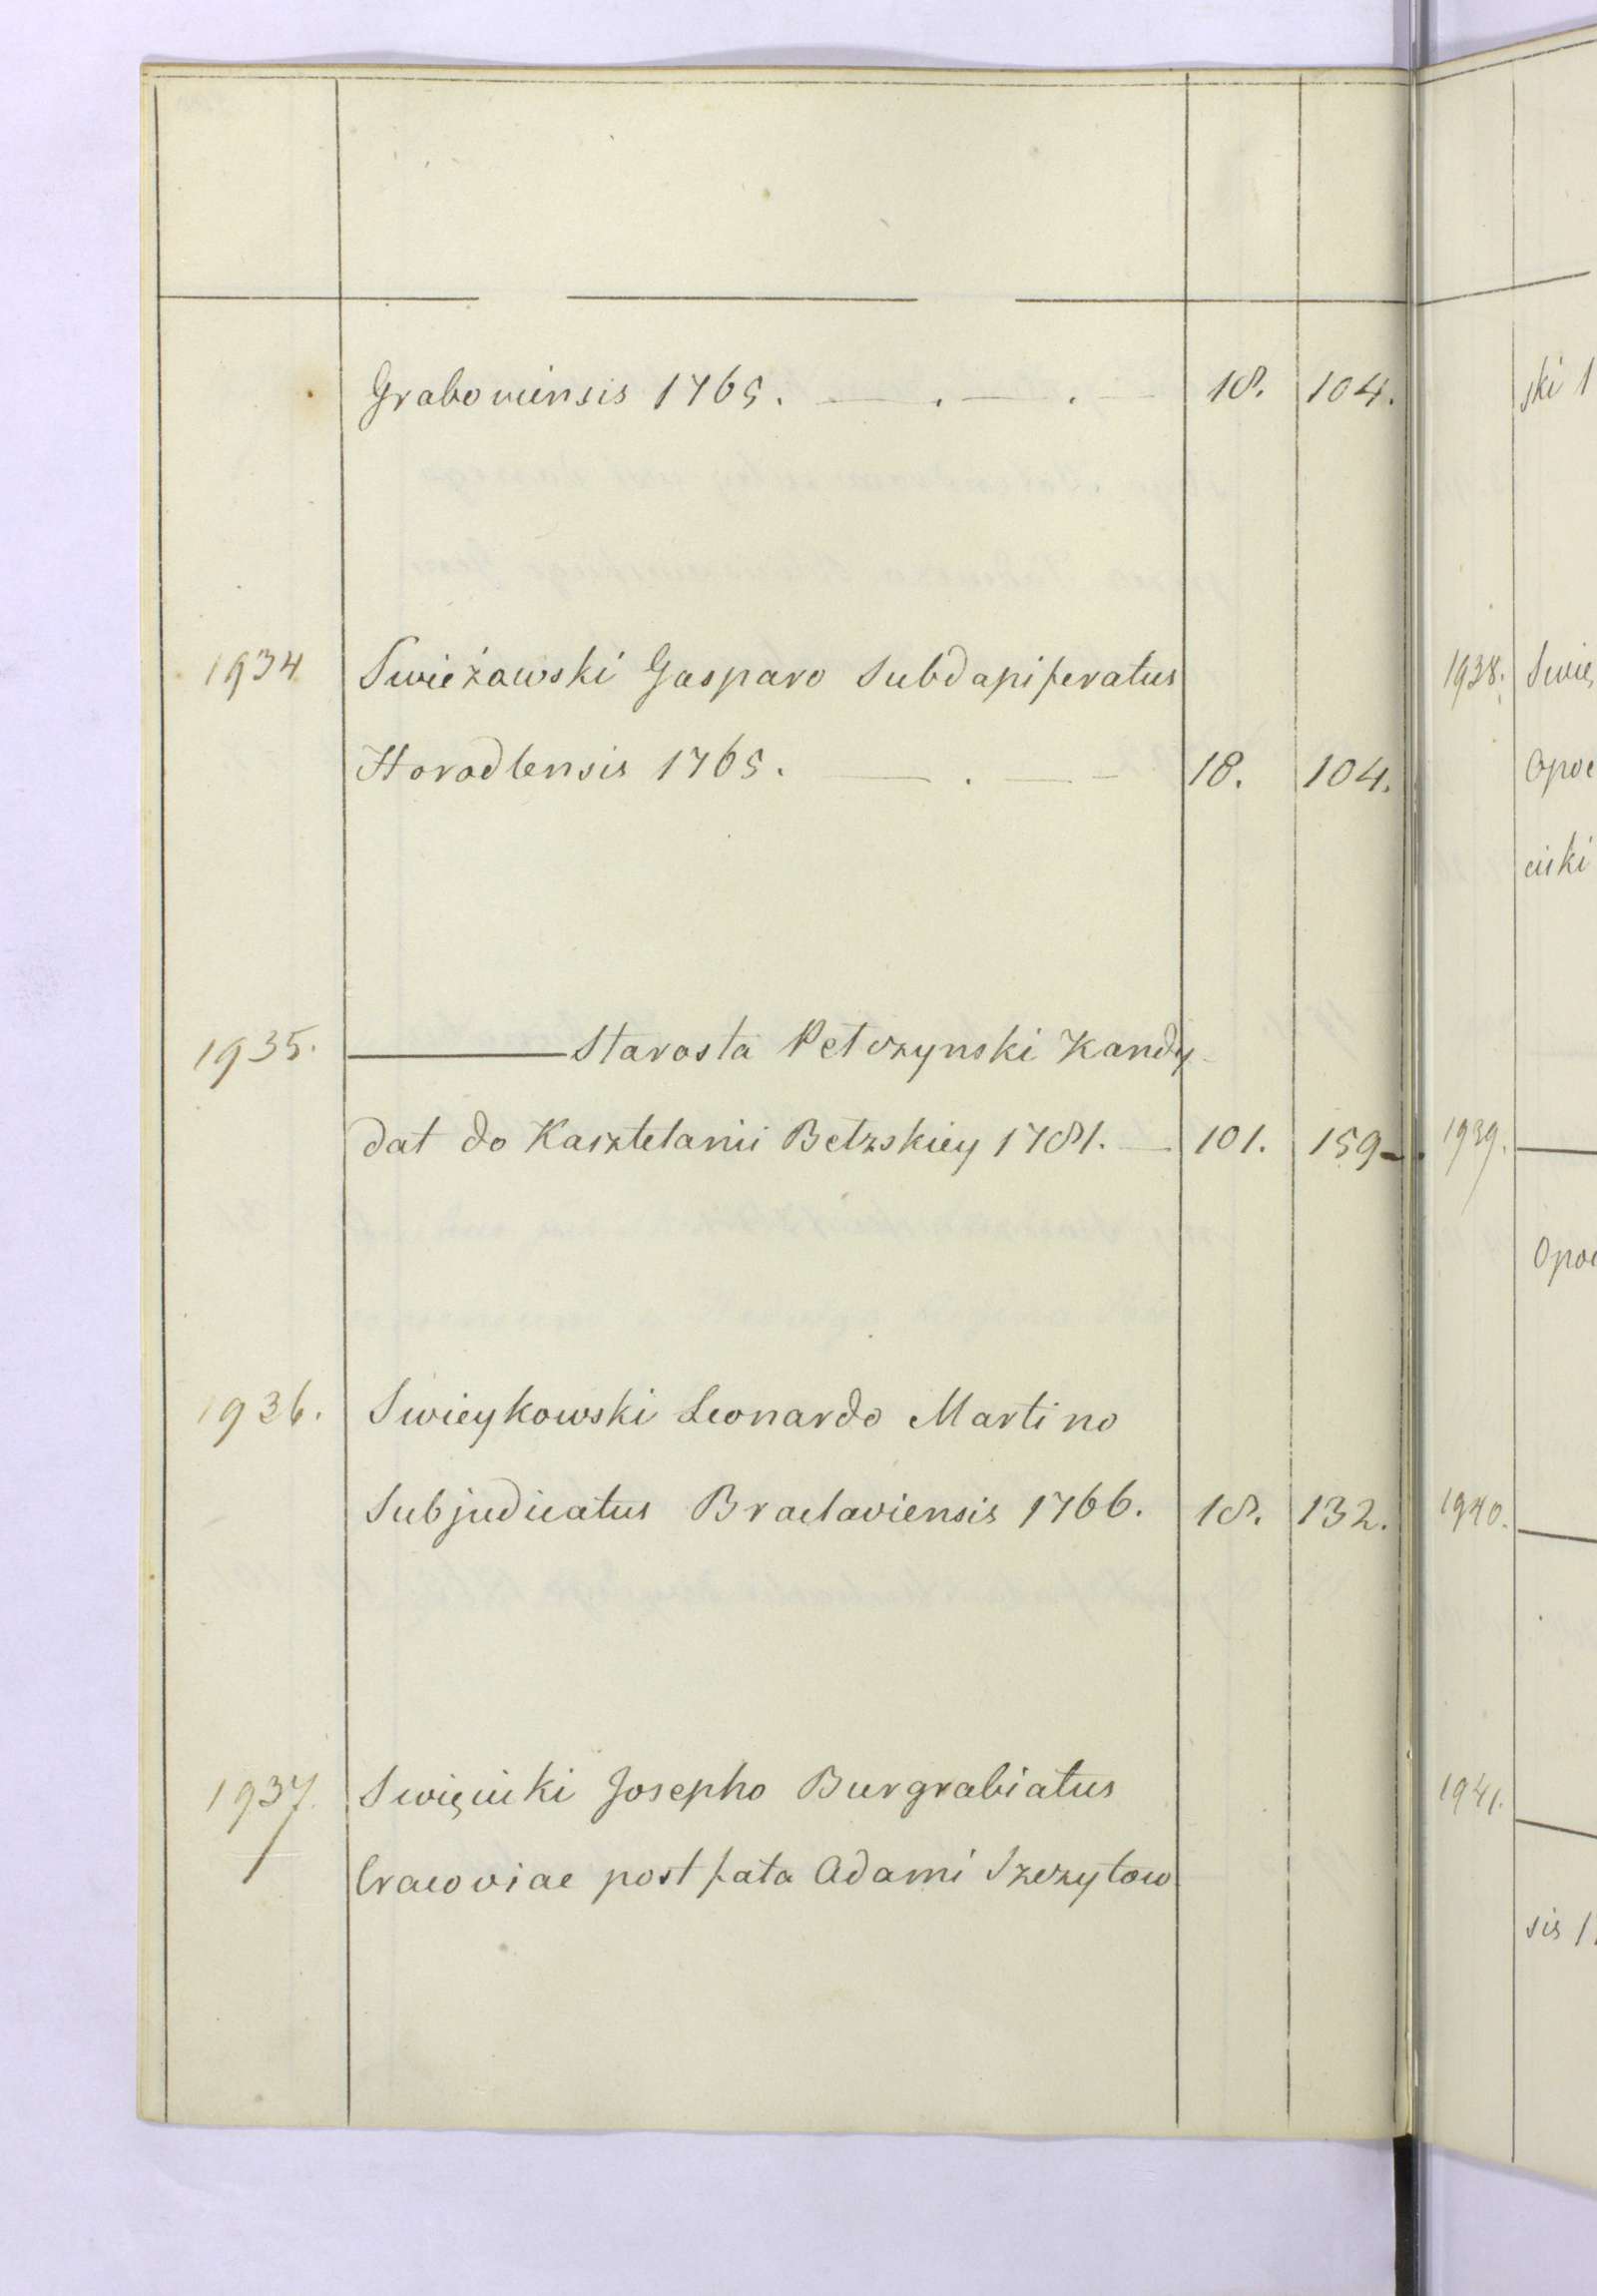 Graboviensis 1765. — . — . — 18. 104.
1934 Swieżawski Gasparo Subdapiferatus
Horodlensis 1765. — . — 18. 104.
1935. ——— Starosta Petczynski Kandy-
dat do Kasztelanii Betzskiey 1781. — 101. 159.
1936. Swieykowski Leonardo Martino
Subjudicatus Braclaviensis 1766. 18. 132.
1937. Swięcicki Josepho Burgrabiatus
Cracoviae post fata Adami Szczytow
ski 1
1938. Swię
Opoc
ciski
1939. —
Opoc
1940. —
1941. —
sis 1